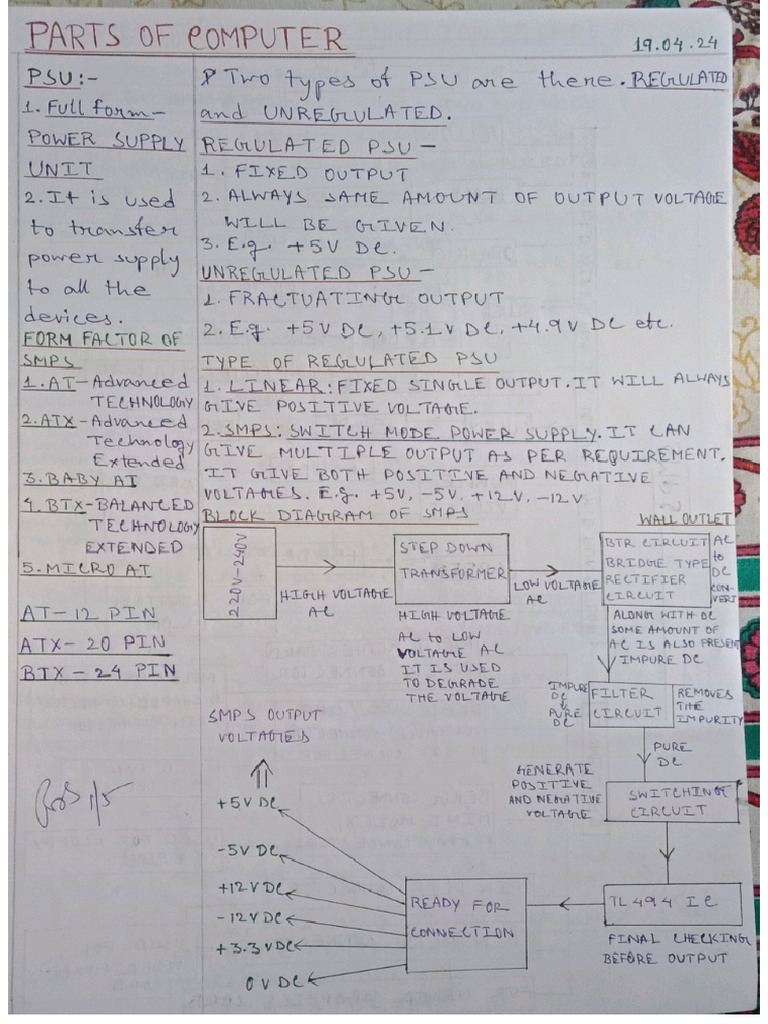 PARTS OF COMPUTER
19.04.24
PSU:-
1. Full form-
POWER SUPPLY
UNIT
2. It is used
to transfer
power supply
to all the
devices.
FORM FACTOR OF
SMPS
1. AT-Advanced
TECHNOLOGY
2. ATX-Advanced
Technology
Extended
3. BABY AT
4. BTX-BALANCED
TECHNOLOGY
EXTENDED
5. MICRO AT
AT-12 PIN
ATX-20 PIN
BTX-24 PIN
Two types of PSU are there. REGULATED
and UNREGULATED.
REGULATED PSU-
1. FIXED OUTPUT
2. ALWAYS SAME AMOUNT OF OUTPUT VOLTAGE
WILL BE GIVEN.
3. E.g. +5V DC.
UNREGULATED PSU-
1. FRACTUATING OUTPUT
2. E.g. +5V DC, +5.1V DC, +4.9V DC etc.
TYPE OF REGULATED PSU
1. LINEAR: FIXED SINGLE OUTPUT. IT WILL ALWAYS
GIVE POSITIVE VOLTAGE.
2. SMPS: SWITCH MODE POWER SUPPLY. IT CAN
GIVE MULTIPLE OUTPUT AS PER REQUIREMENT.
IT GIVE BOTH POSITIVE AND NEGATIVE
VOLTAGES. E.g. +5V, -5V, +12V, -12V
BLOCK DIAGRAM OF SMPS
WALL OUTLET
220V-240V
HIGH VOLTAGE
AC
STEP DOWN
TRANSFORMER
HIGH VOLTAGE
AC to LOW
VOLTAGE AC
IT IS USED
TO DEGRADE
THE VOLTAGE
LOW VOLTAGE
AC
BTR CIRCUIT
BRIDGE TYPE
RECTIFIER
CIRCUIT
AC
to
DC
CON-
VERT
ALONG WITH DC
SOME AMOUNT OF
AC IS ALSO PRESENT
IMPURE DC
IMPURE
DC
↓
PURE
DC
FILTER
CIRCUIT
REMOVES
THE
IMPURITY
PURE
DC
GENERATE
POSITIVE
AND NEGATIVE
VOLTAGE
SWITCHING
CIRCUIT
TL 494 IC
FINAL CHECKING
BEFORE OUTPUT
READY FOR
CONNECTION
SMPS OUTPUT
VOLTAGES
+5V DC
-5V DC
+12V DC
-12V DC
+3.3V DC
0V DC